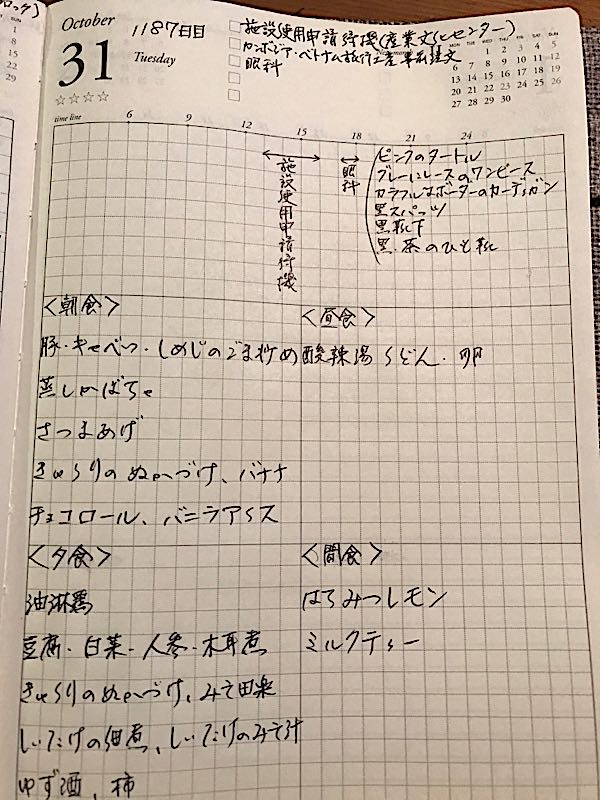 October
31
Tuesday
☆☆☆☆
1187日目
□ 施設使用申請待機(産業文化センター)
□ カンボジア・ベトナム旅行土産 事前注文
□ 眼科
□
□
November
MON TUE WED THU FRI SAT SUN
1 2 3 4 5
6 7 8 9 10 11 12
13 14 15 16 17 18 19
20 21 22 23 24 25 26
27 28 29 30
time line 6 9 12 15 18 21 24
施設使用申請待機
眼科
ピンクのタートル
グレーにレースのワンピース
カラフルなボーターのカーディガン
黒スパッツ
黒靴下
黒・茶のひも靴
<朝食>
豚・キャベツ・しめじのごま炒め
蒸しかぼちゃ
さつまあげ
きゅうりのぬかづけ、バナナ
チョコロール、バニラアイス
<昼食>
酸辣湯うどん・卵
<夕食>
油淋鶏
豆腐・白菜・人参・木耳煮
きゅうりのぬかづけ、みそ田楽
しいたけの佃煮、しいたけのみそ汁
ゆず酒、柿
<間食>
はちみつレモン
ミルクティー